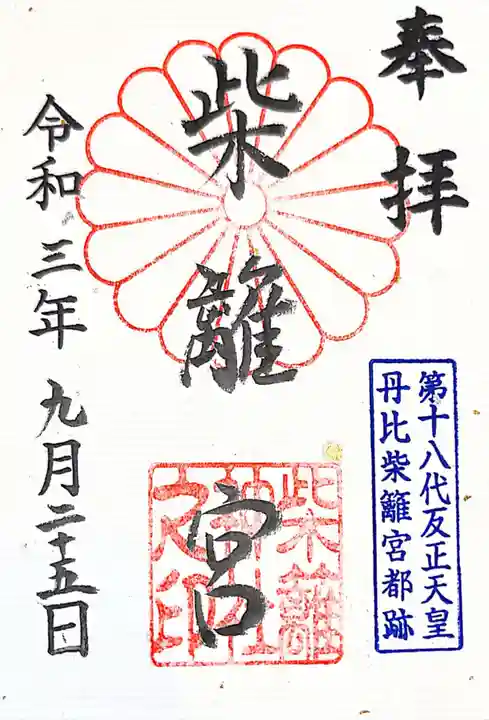 奉拝
第十八代反正天皇
丹比柴籬宮都跡
柴籬宮
柴籬神社之印
令和三年九月二十五日